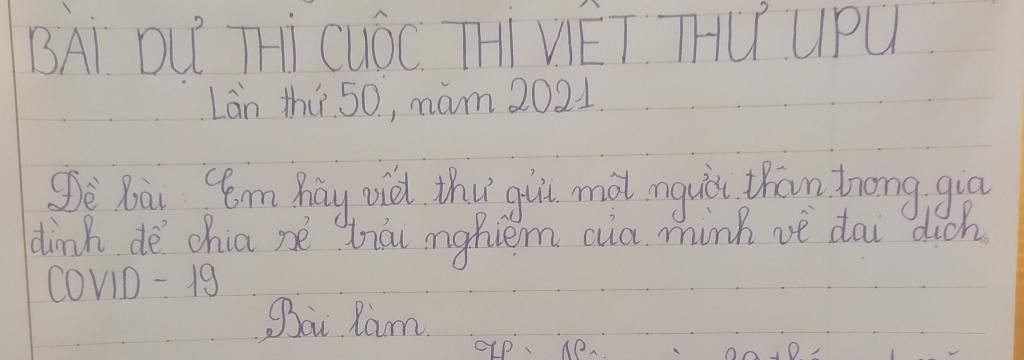 BÀI DỰ THI CUỘC THI VIẾT THƯ UPU
Lần thứ 50, năm 2021.
Đề bài: Em hãy viết thư gửi một người thân trong gia
đình để chia sẻ trải nghiệm của mình về đại dịch.
COVID - 19
Bài làm